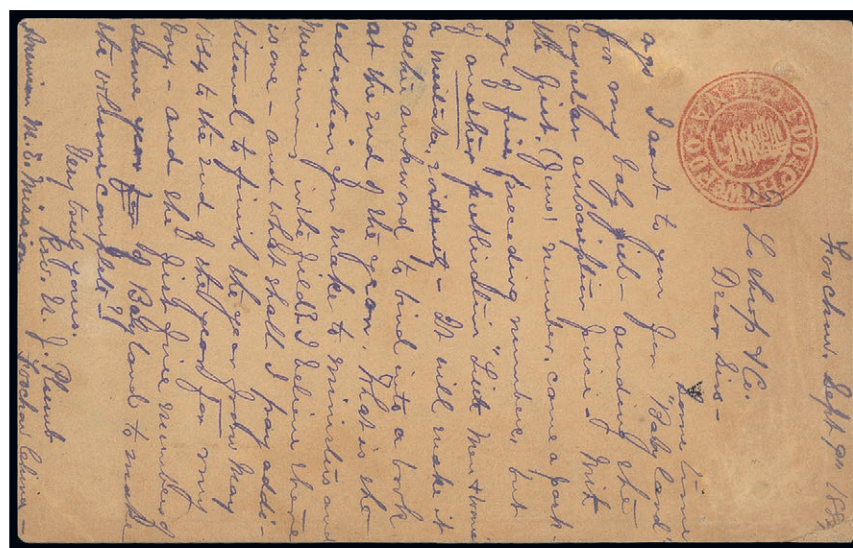 Foochow, Sept 9th 188
Lothrop & Co.
Dear Sirs—
Some time
ago I sent to you for "Babyland"
for my baby girl— sending the
regular subscription price. With
the first (June) number, came a pack-
age of five preceding numbers, but
of another publication "Little Men & Wome
a mistake, evidently— It will make it
rather awkward to bind into a book
at the end of the year. What is the
reduction you make to ministers and
missionaries in the field? I believe there
is one— and what shall I pay addi-
tional to finish the year from May
1884 to the end of the year for my
boy— and the first five numbers of
same year for of Babyland to make
the volume complete—?
Very truly yours.
Rev. N. J. Plumb
American M. E. Mission
Foochow China—
FOOCHOW
CHINA